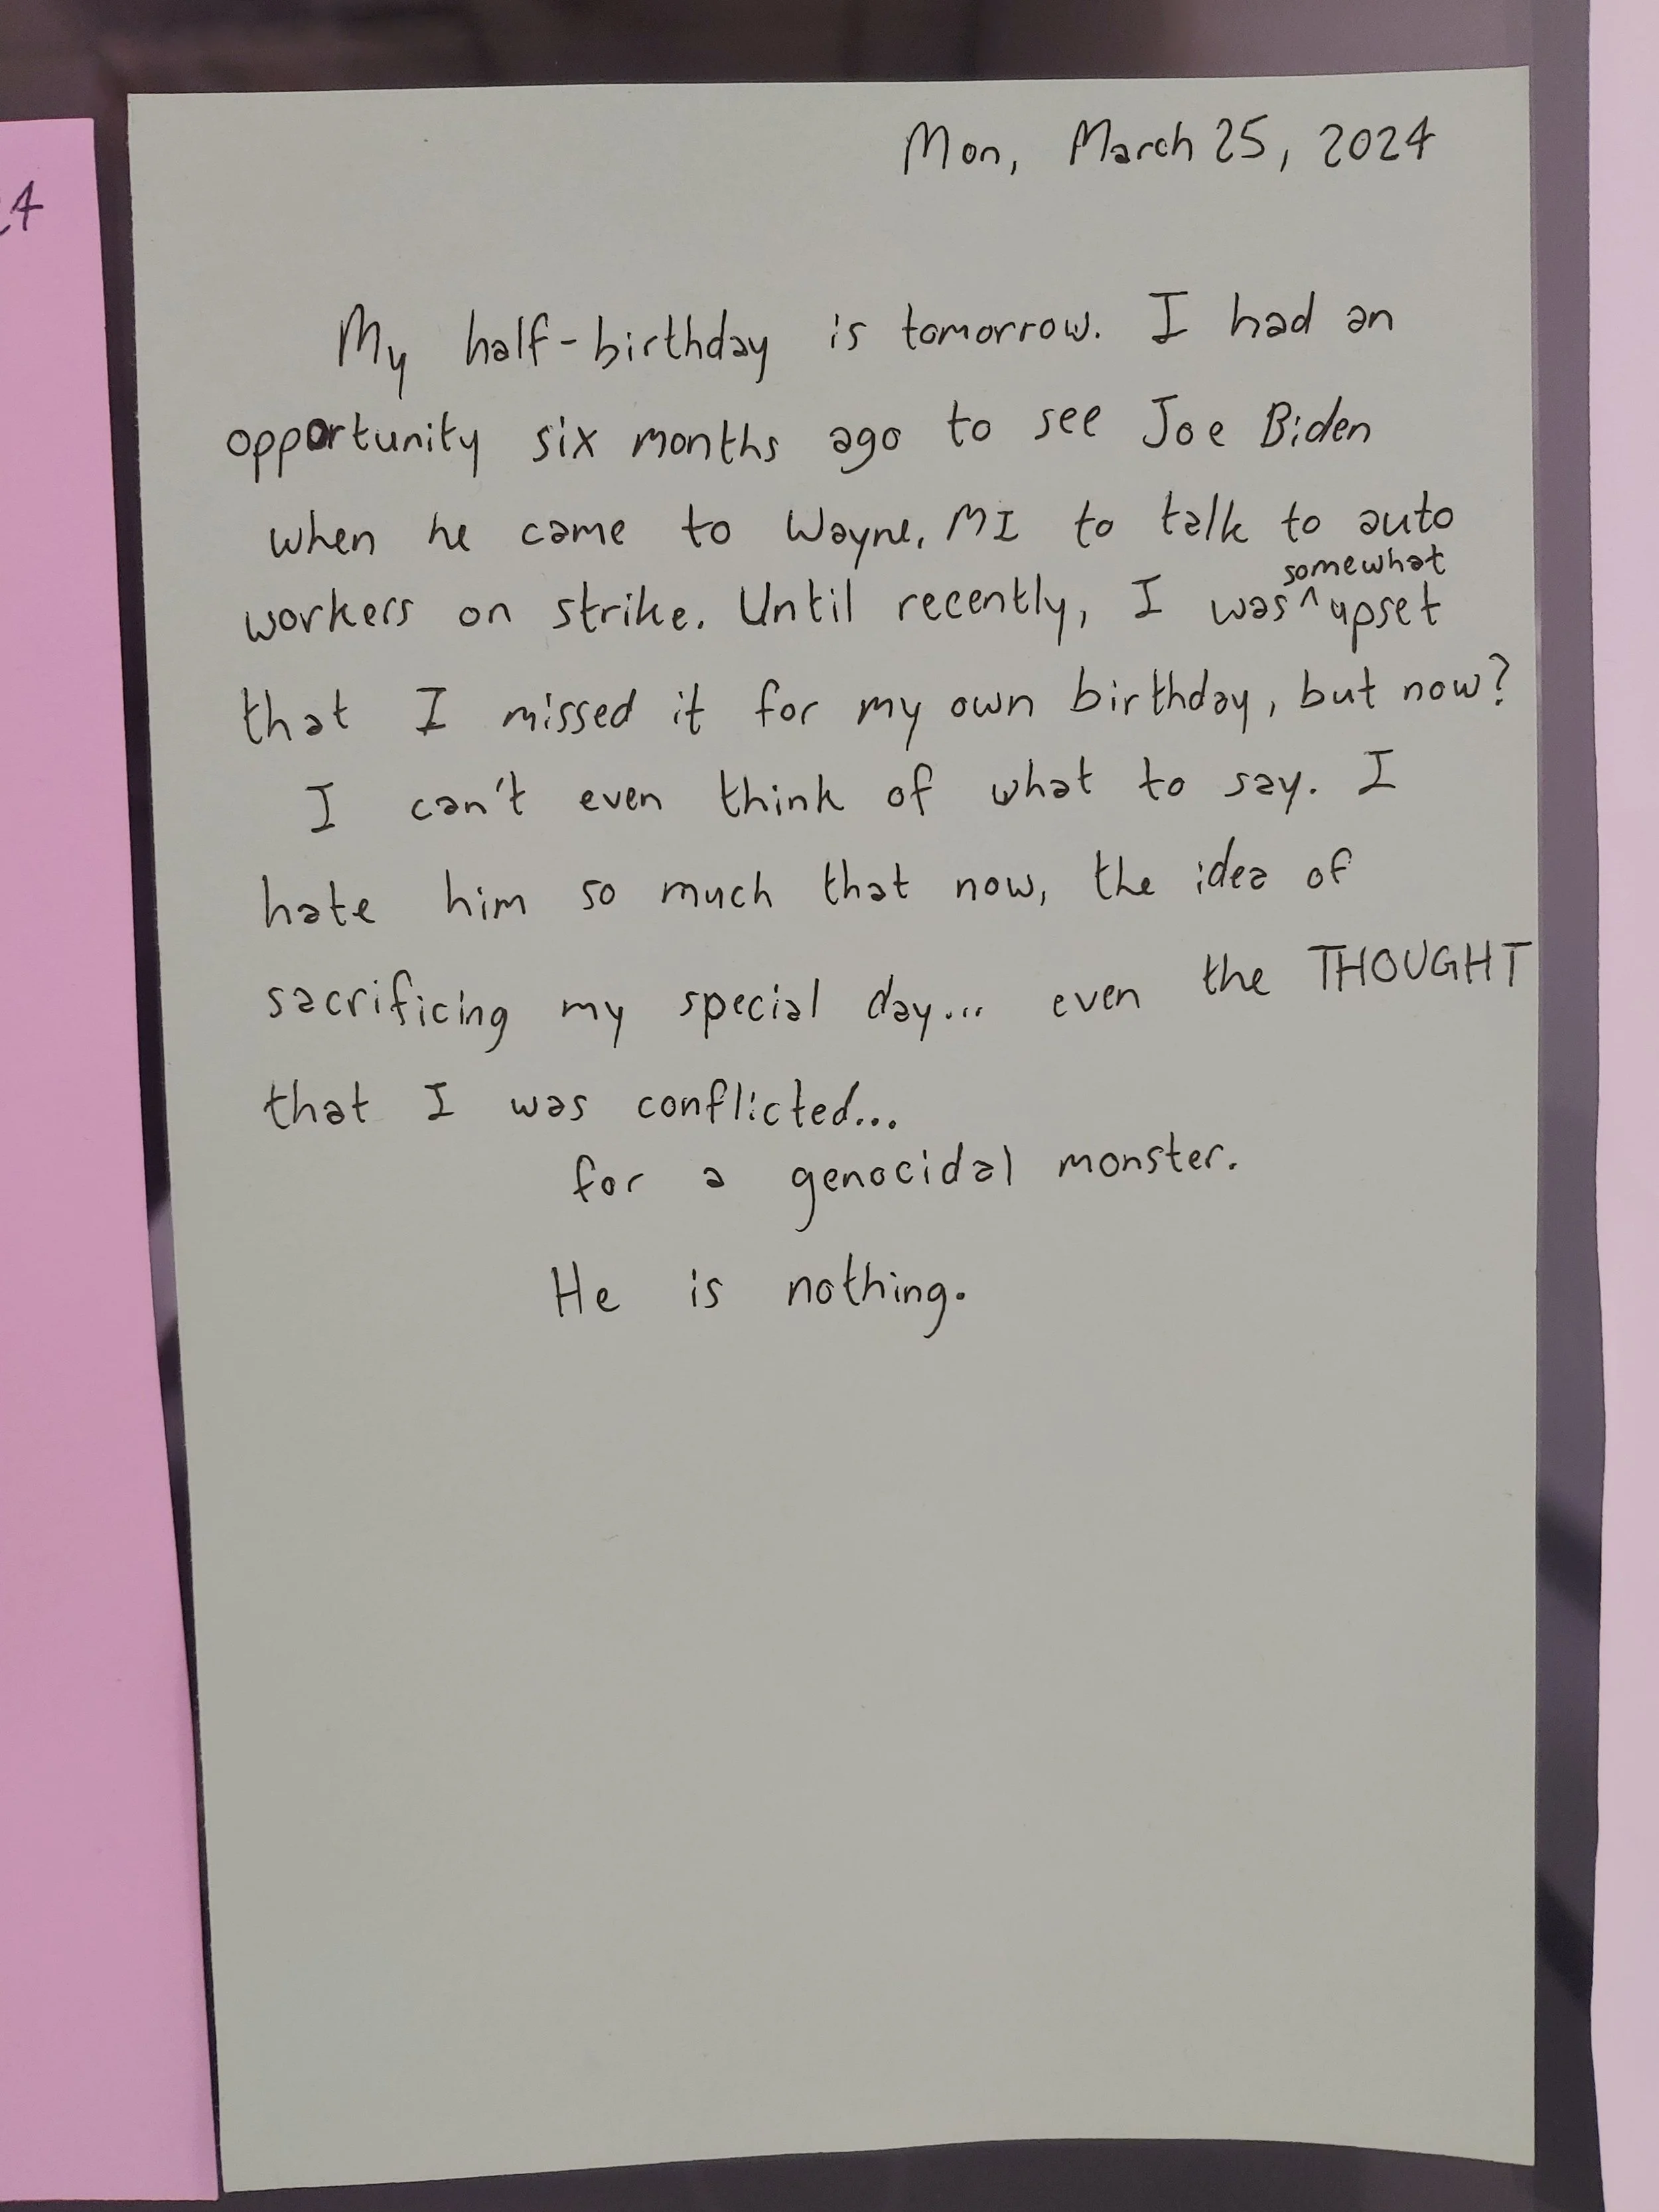 Mon, March 25, 2024
24
My half-birthday is tomorrow. I had an
opportunity six months ago to see Joe Biden
when he came to Wayne, MI to talk to auto
workers on strike. Until recently, I was ^somewhat upset
that I missed it for my own birthday, but now?
I can't even think of what to say. I
hate him so much that now, the idea of
sacrificing my special day... even the THOUGHT
that I was conflicted...
for a genocidal monster.
He is nothing.